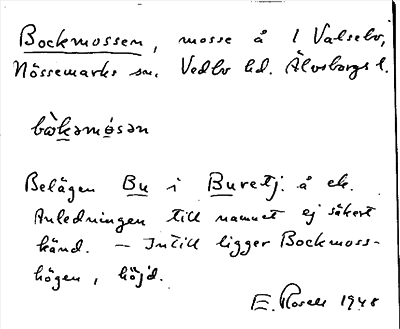 Bockmossen, mosse å 1 Valselv,
Nössemarks sn. Vedbo hd. Älvsborgs l.
bòkəmósən
Belägen Bu i Buretj. å ek.
Anledningen till namnet ej säkert
känd. – Intill ligger Bockmoss-
högen, höjd.
E. Rosell 1948